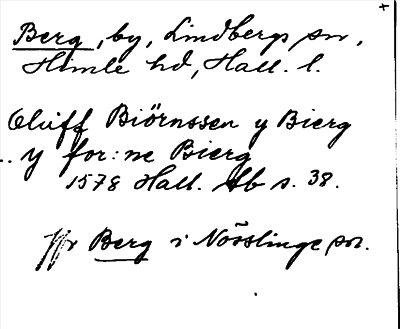 Berg, by, Lindbergs sn,
Himle hd, Hall. l.
Oluff Biörnssen y Bierg
.. y for:ne Bierg
1578 Hall. Jb s. 38.
Jfr Berg i Nösslinge sn.